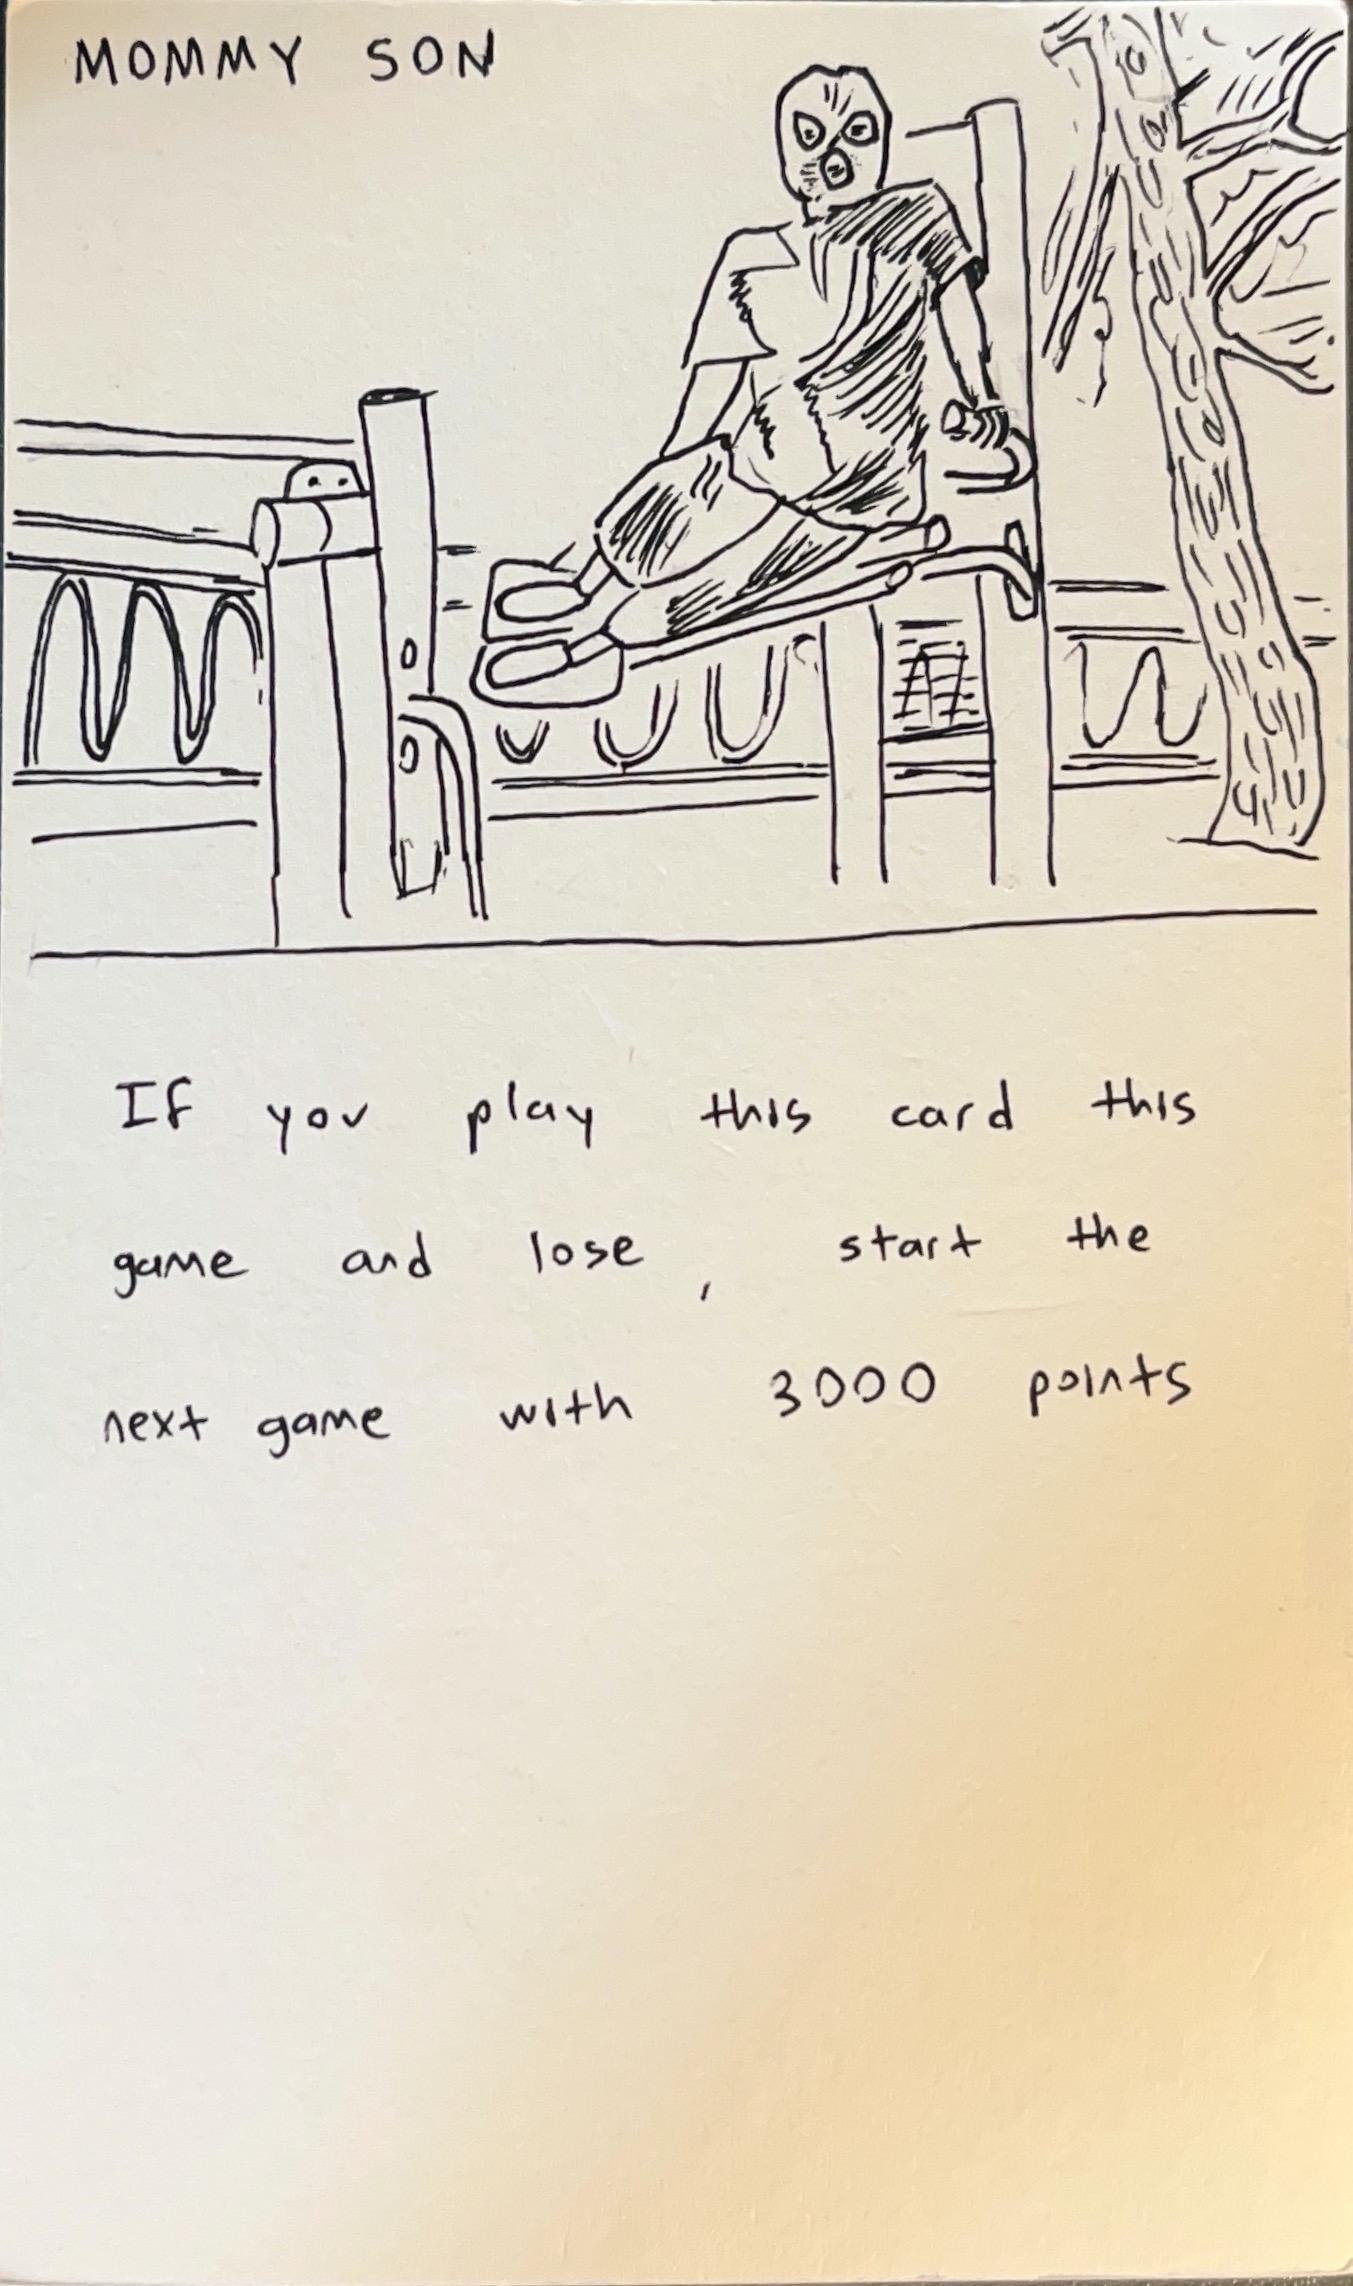 MOMMY SON
If you play this card this
game and lose, start the
next game with 3000 points